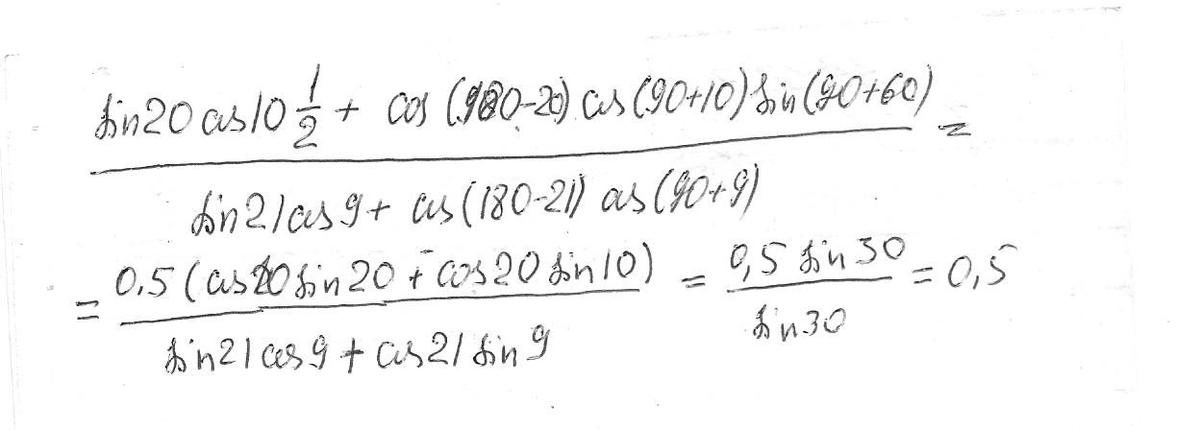 sin20 cos10 1/2 + cos (180-20) cos (90+10) sin (90+60) =
sin21 cos 9 + cos (180-21) cos (90+9)
= 0,5 (cos10 sin 20 + cos 20 sin 10) = 0,5 sin 30 = 0,5
sin21 cos 9 + cos 21 sin 9 sin 30